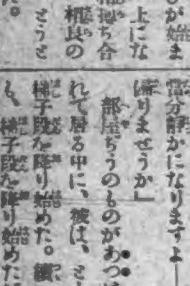 當分靜かになりますよ――
歸りませうか』
部屋ぢうのものがあつ
れて居る中に、彼は、と
梯子段を降り始めた。續
も、梯子段を降り始めた
が始ま
上にな
抱ち合
相長の
どうと
た。